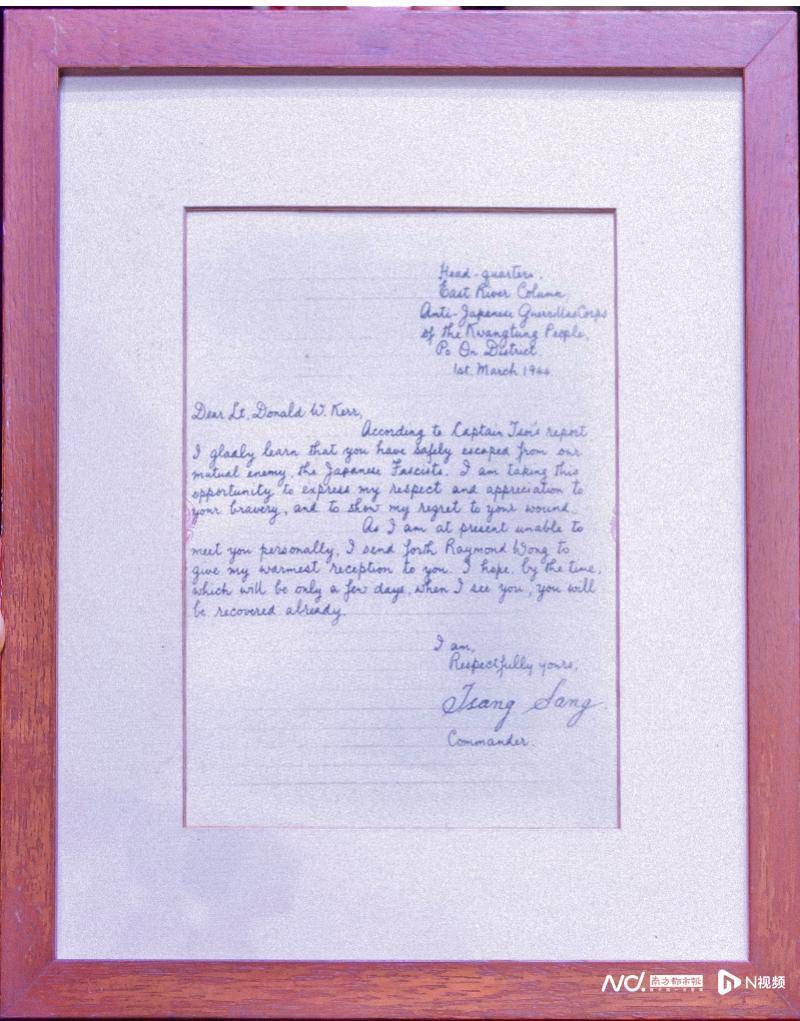 Head-quarters,
East River Column,
Anti-Japanese Guerrillas Corps
of the Kwangtung People,
Po On District.
1st. March 1944
Dear Lt. Donald W. Kerr,
According to Captain Tso's report
I gladly learn that you have safely escaped from our
mutual enemy, the Japanese Fascists. I am taking this
opportunity to express my respect and appreciation to
your bravery, and to show my regret to your wound.
As I am at present unable to
meet you personally, I send forth Raymond Wong to
give my warmest reception to you. I hope, by the time,
which will be only a few days, when I see you, you will
be recovered already.
I am,
Respectfully yours,
Tsang Sang.
Commander.
N视频
南方都市报